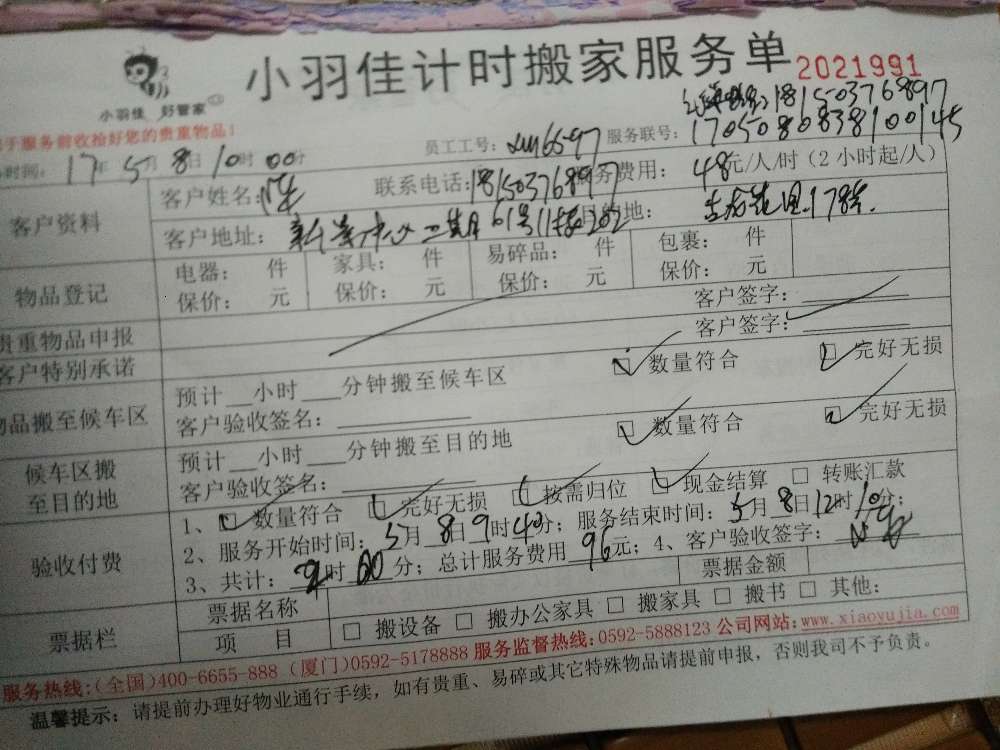 小羽佳计时搬家服务单
2021991
小羽佳 好管家
于服务前收拾好您的贵重物品!
18150376897
时间: 17年5月8日10时00分 员工工号: 服务联号: 170508083810045
客户资料
客户姓名: 联系电话: 18150376897 服务费用: 48元/人/时(2小时起/人)
客户地址: 中心二期61号11楼202 目的地: 178
物品登记
电器: 件 家具: 件 易碎品: 件 包裹: 件
保价: 元 保价: 元 保价: 元 保价: 元
贵重物品申报 客户签字:
客户特别承诺 客户签字:
物品搬至候车区
预计__小时___分钟搬至候车区 ☑ 数量符合 ☑ 完好无损
客户验收签名:
候车区搬
至目的地
预计__小时___分钟搬至目的地 ☑ 数量符合 ☑ 完好无损
客户验收签名:
验收付费
1、☑ 数量符合 ☑ 完好无损 ☑ 按需归位 ☑ 现金结算 □ 转账汇款
2、服务开始时间: 5月8日9时40分; 服务结束时间: 5月8日12时10分;
3、共计: 2时00分; 总计服务费用96元; 4、客户验收签字:
票据栏
票据名称 票据金额
项 目 □ 搬设备 □ 搬办公家具 □ 搬家具 □ 搬书 □ 其他:
服务热线:(全国)400-6655-888 (厦门)0592-5178888 服务监督热线:0592-5888123 公司网站:www.xiaoyujia.com
温馨提示: 请提前办理好物业通行手续,如有贵重、易碎或其它特殊物品请提前申报,否则我司不予负责。